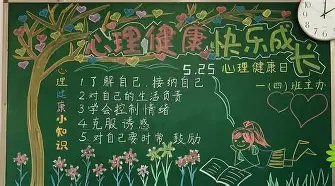 心理健康 快乐成长
5.25心理健康日
一(四)班主办
心理健康小知识
1了解自己,接纳自己
2对自己的生活负责
3学会控制情绪
4克服诱惑
5.对自己要时常鼓励